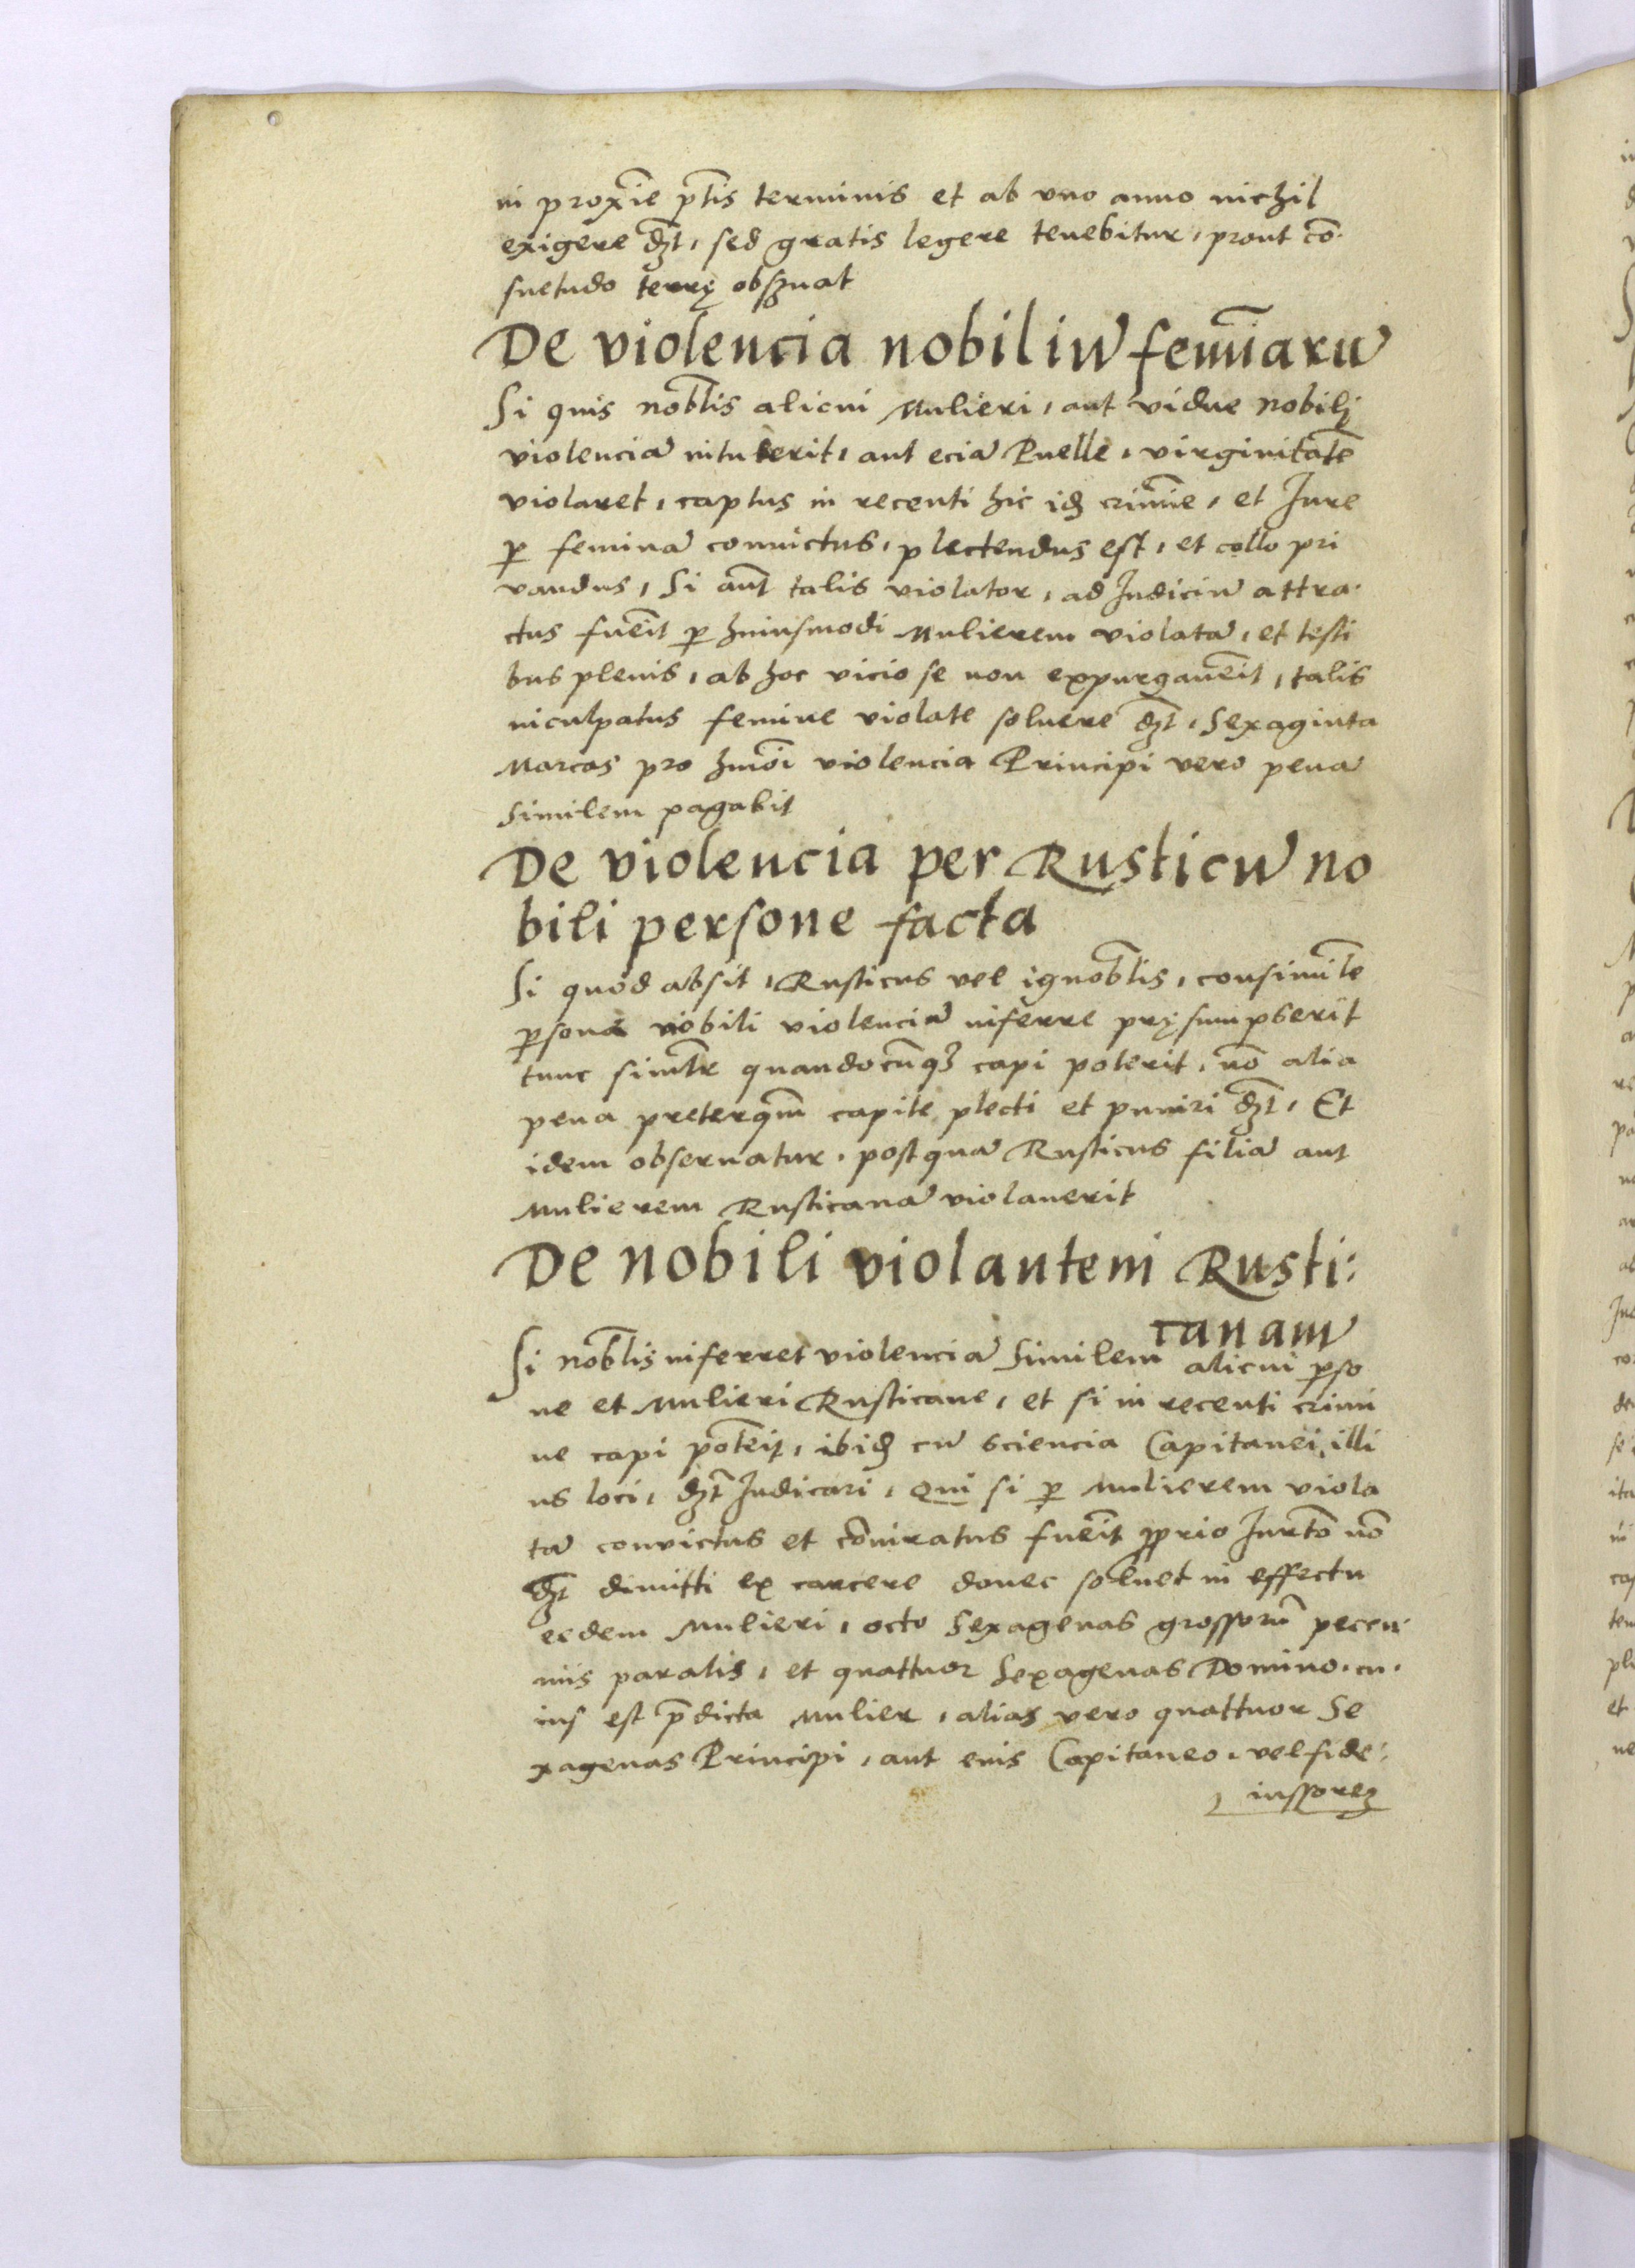 in proxĩe p̃tis terminis et ab vno anno nichil
exigere dꝫt, sed gratis legere tenebitur, prout cõ-
suetudo terrę obsꝫuat
De violencia nobiliũ femĩarũ
Si quis nobl̃is alicui Mulieri, aut vidue nobilj
violenciã intulerit, aut eciã Puelle, virginitatẽ
violaret, captus in recenti hic idꝫ crimĩe, et Jure
ꝑ feminã conuictus, plectendus est, et collo pri
vandus, Si aut̃ talis violator, ad Judiciũ attra-
ctus fuẽit ꝑ huiusmodi Mulierem violatã, et testi
bus plenis, ab hoc vicio se non expurgauẽit, talis
inculpatus femine violate soluere dꝫt, Sexaginta
Marcas pro hmõi violencia Principi vero penã
Similem pagabit
De violencia per Rusticũ no
bili persone facta
Si quod absit, Rusticus vel ignobl̃is, consimil̃e
ꝑsonã nobili violenciã inferre pręsumpserit
tunc simil̃r quandocũqꝫ capi poterit, nõ alia
pena preterqm̃ capite plecti et puniri dꝫt, Et
idem obseruatur, postquã Rusticus filiã aut
Mulierem Rusticanã violauerit
De nobili violantem Rusti:
canam
Si nobl̃is inferret violenciã Similem alicui ꝑso
ne et Mulieri Rusticane, et si in recenti crimi
ne capi potẽit, ibidꝫ cũ sciencia Capitanei illi
us loci, dꝫt Judicari, Qui si ꝑ Mulierem viola
tã convictus et cõniratus fuẽit ꝓprio Jurtõ nõ
dꝫt dimitti ex carcere donec soluet in effectu
eedem Mulieri, octo Sexagenas grossorũ pecu-
niis paratis, et quattuor Sexagenas Domino, cu-
ius est p̃dicta Mulier, alias vero quattuor Se
xagenas Principi, aut eius Capitaneo, vel fide:
iussoreꝫ